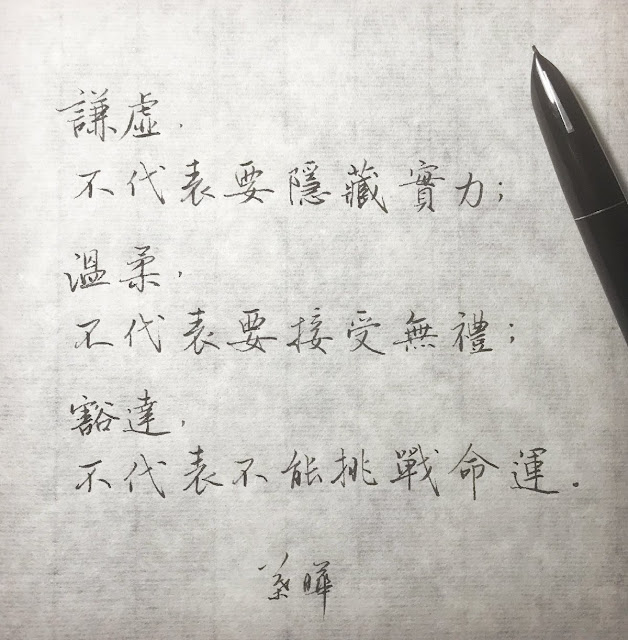 謙虛，
不代表要隱藏實力；
溫柔，
不代表要接受無禮；
豁達，
不代表不能挑戰命運．
葉曄